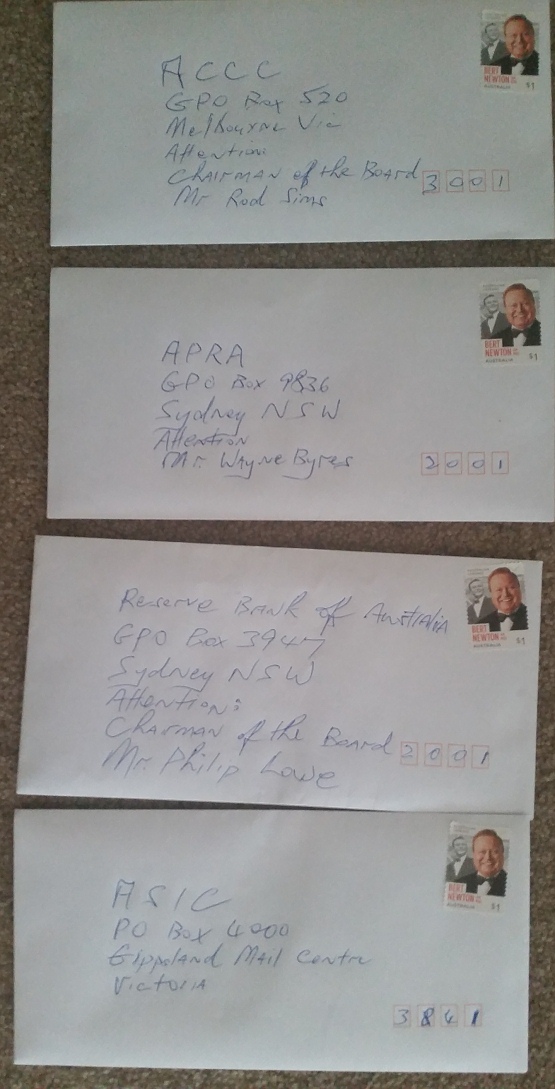 BERT
NEWTON
AUSTRALIA
$1
ACCC
GPO Box 520
Melbourne Vic
Attention
Chairman of the Board
3001
Mr Rod Sims
BERT
NEWTON
AUSTRALIA
$1
APRA
GPO Box 9836
Sydney NSW
Attention
Mr. Wayne Byres
2001
BERT
NEWTON
AUSTRALIA
$1
Reserve Bank of Australia
GPO Box 3947
Sydney NSW
Attention:
Chairman of the Board
2001
Mr. Philip Lowe
BERT
NEWTON
AUSTRALIA
$1
ASIC
PO Box 4000
Gippsland Mail Centre
Victoria
3841